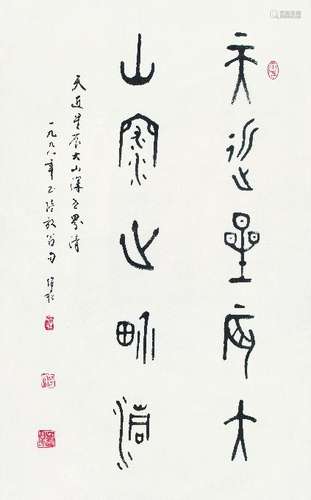 天近星辰大
山深世界清
天近星辰大山深世界清
一九九八年
放翁句